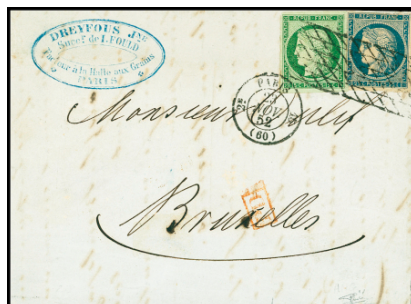 DREYFOUS Jne
Succr de L. FOULD
Facteur à la Halle aux Grains
PARIS
REPUB. FRANC.
REPUB. FRANC.
PARIS
NOV.
52
(60)
Monsieur
Bruxelles